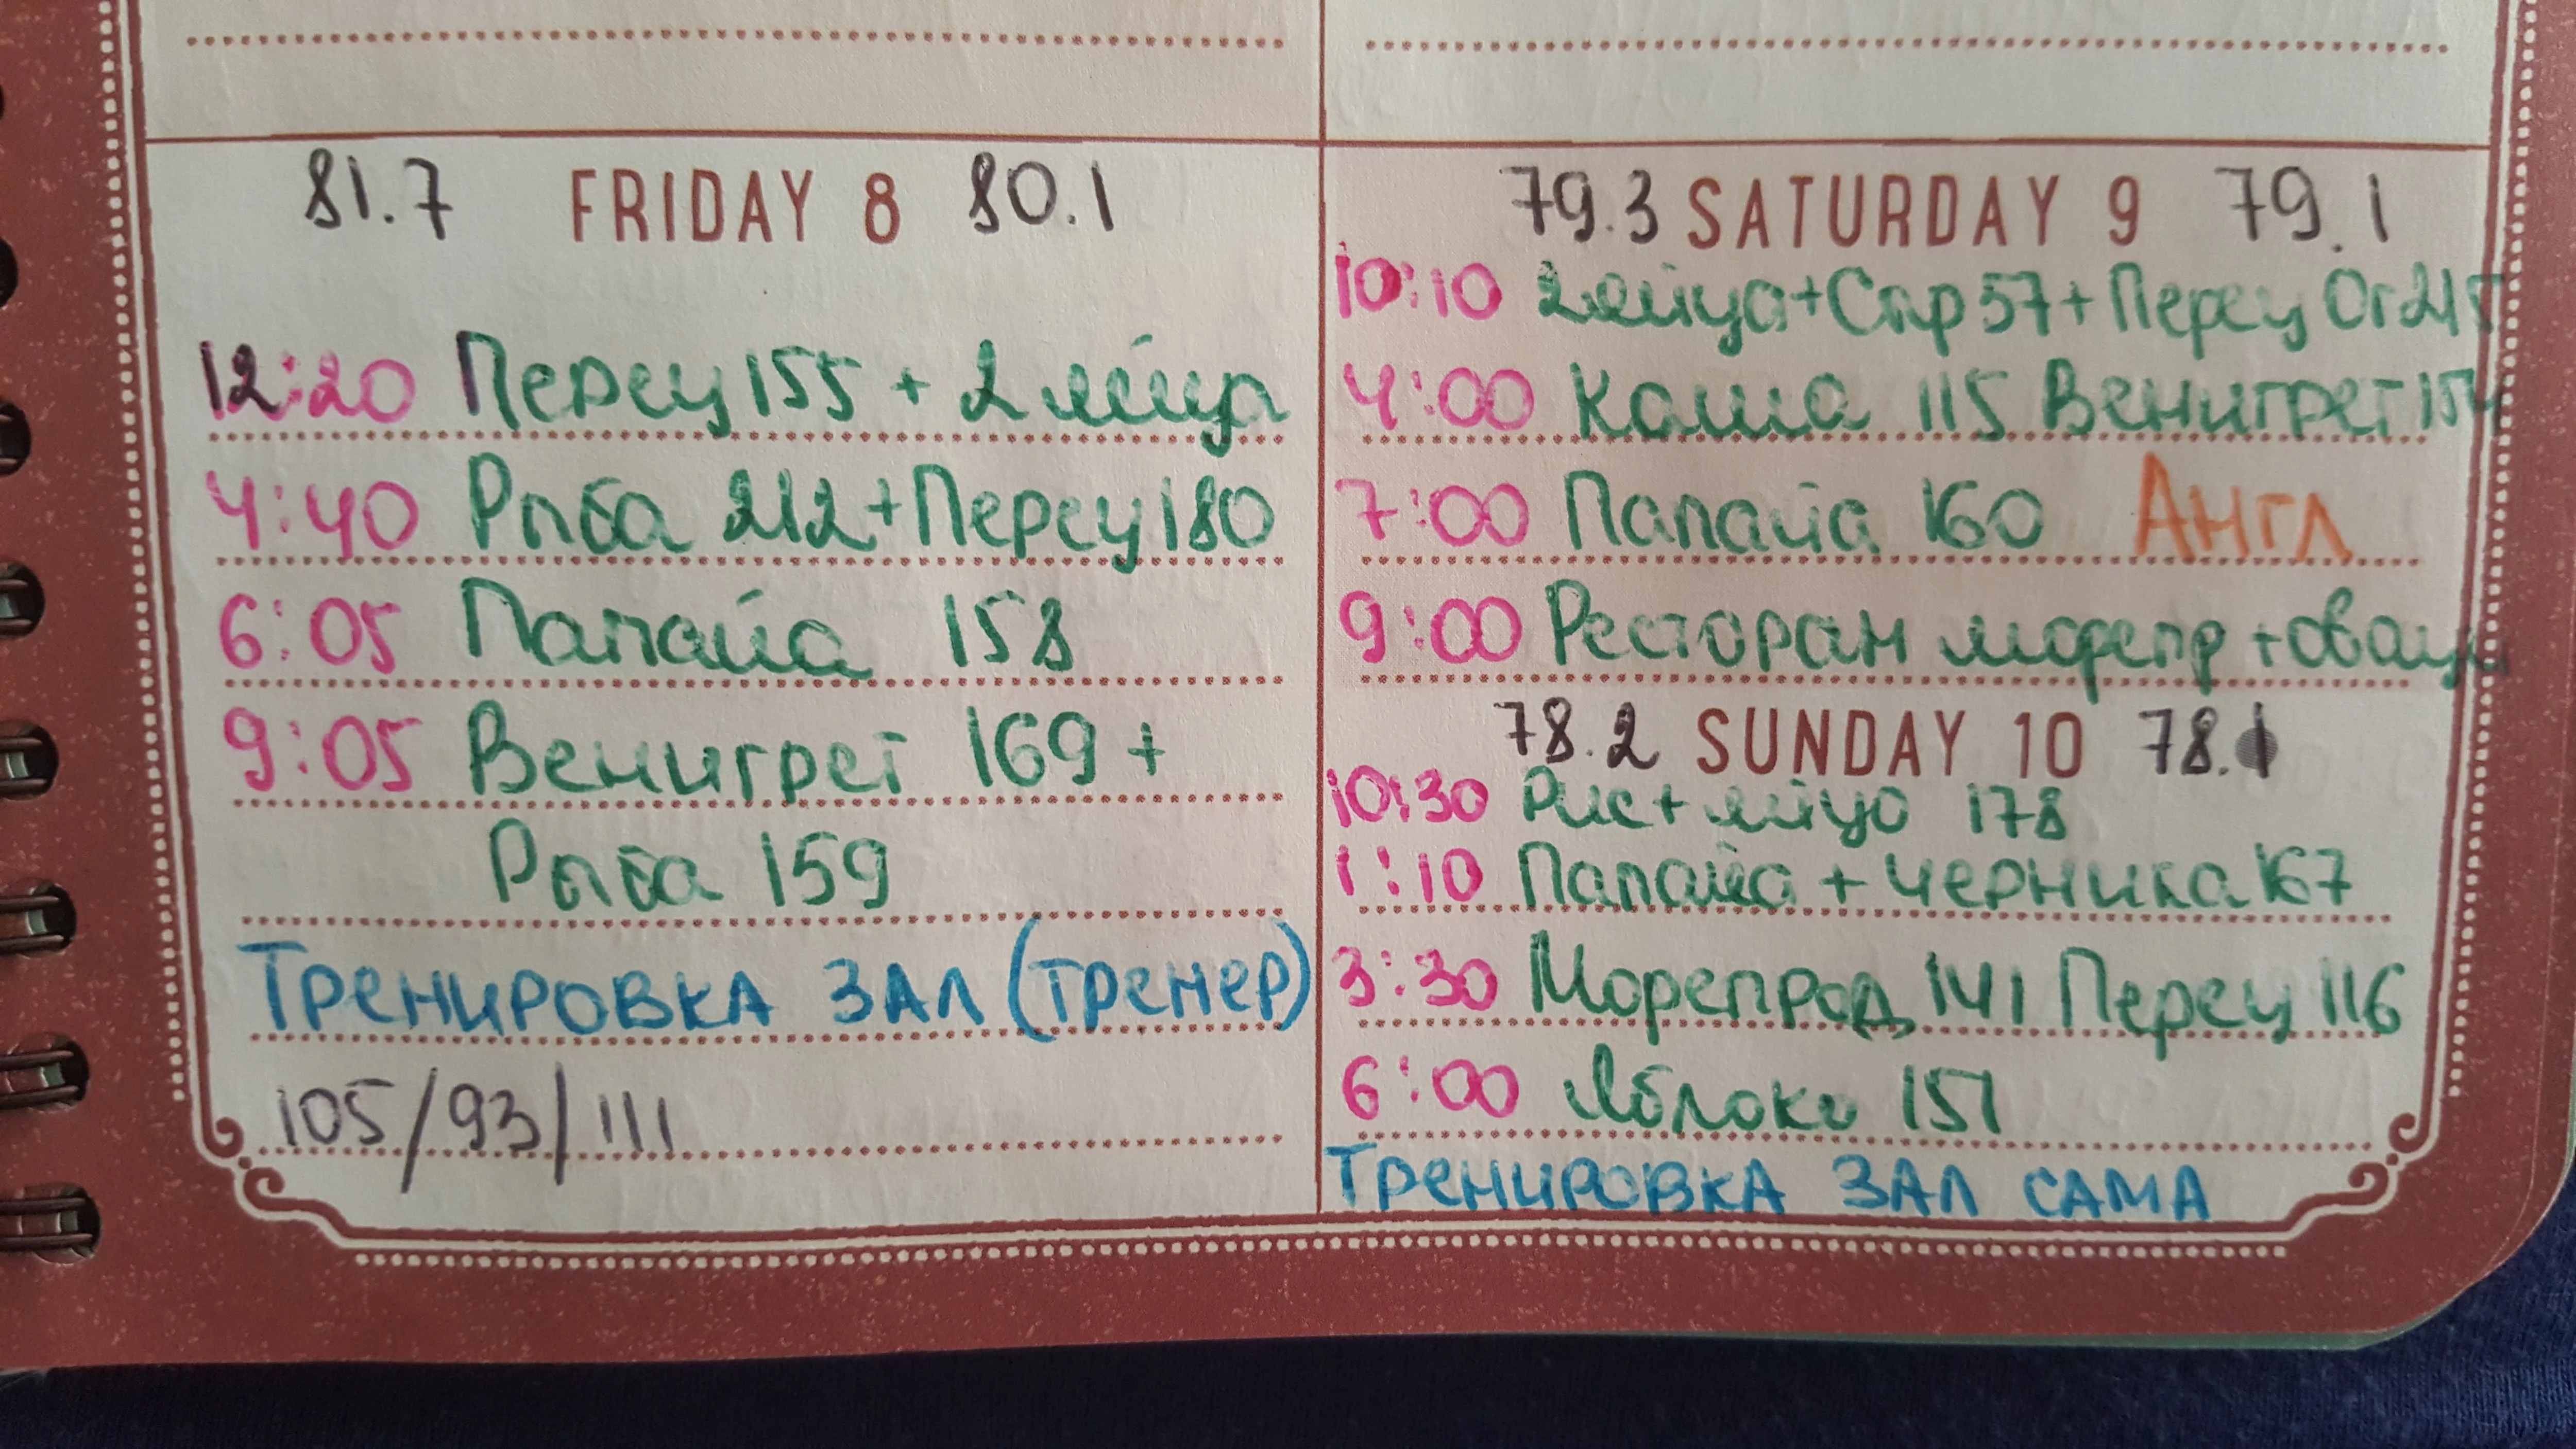 81.7 FRIDAY 8 80.1
12:20 Перец 155 + 2 яйца
4:40 Рыба 212 + Перец 180
6:05 Папайа 158
9:05 Венигрет 169 +
Рыба 159
ТРЕНИРОВКА ЗАЛ (ТРЕНЕР)
105/93/111
79.3 SATURDAY 9 79.1
10:10 2 яйца + Сыр 57 + Перец Ог 215
4:00 Каша 115 Венигрет 154
7:00 Папайа 160 Англ
9:00 Ресторан морепр + овощи
78.2 SUNDAY 10 78.1
10:30 Рис + яйцо 178
1:10 Папайа + черника 167
3:30 Морепрод 141 Перец 116
6:00 Яблоко 151
ТРЕНИРОВКА ЗАЛ САМА